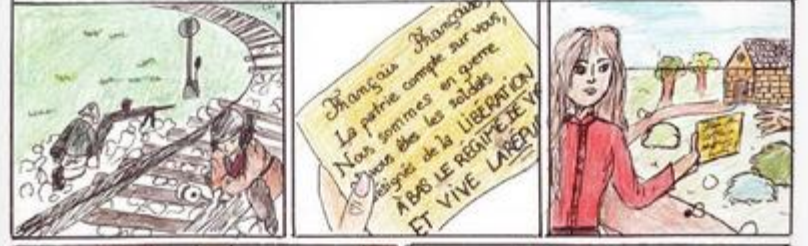 Français Françaises,
La patrie compte sur vous,
Nous sommes en guerre
vous êtes les soldats
désignés de la LIBÉRATION
À BAS LE RÉGIME DE VI
ET VIVE LA RÉPU